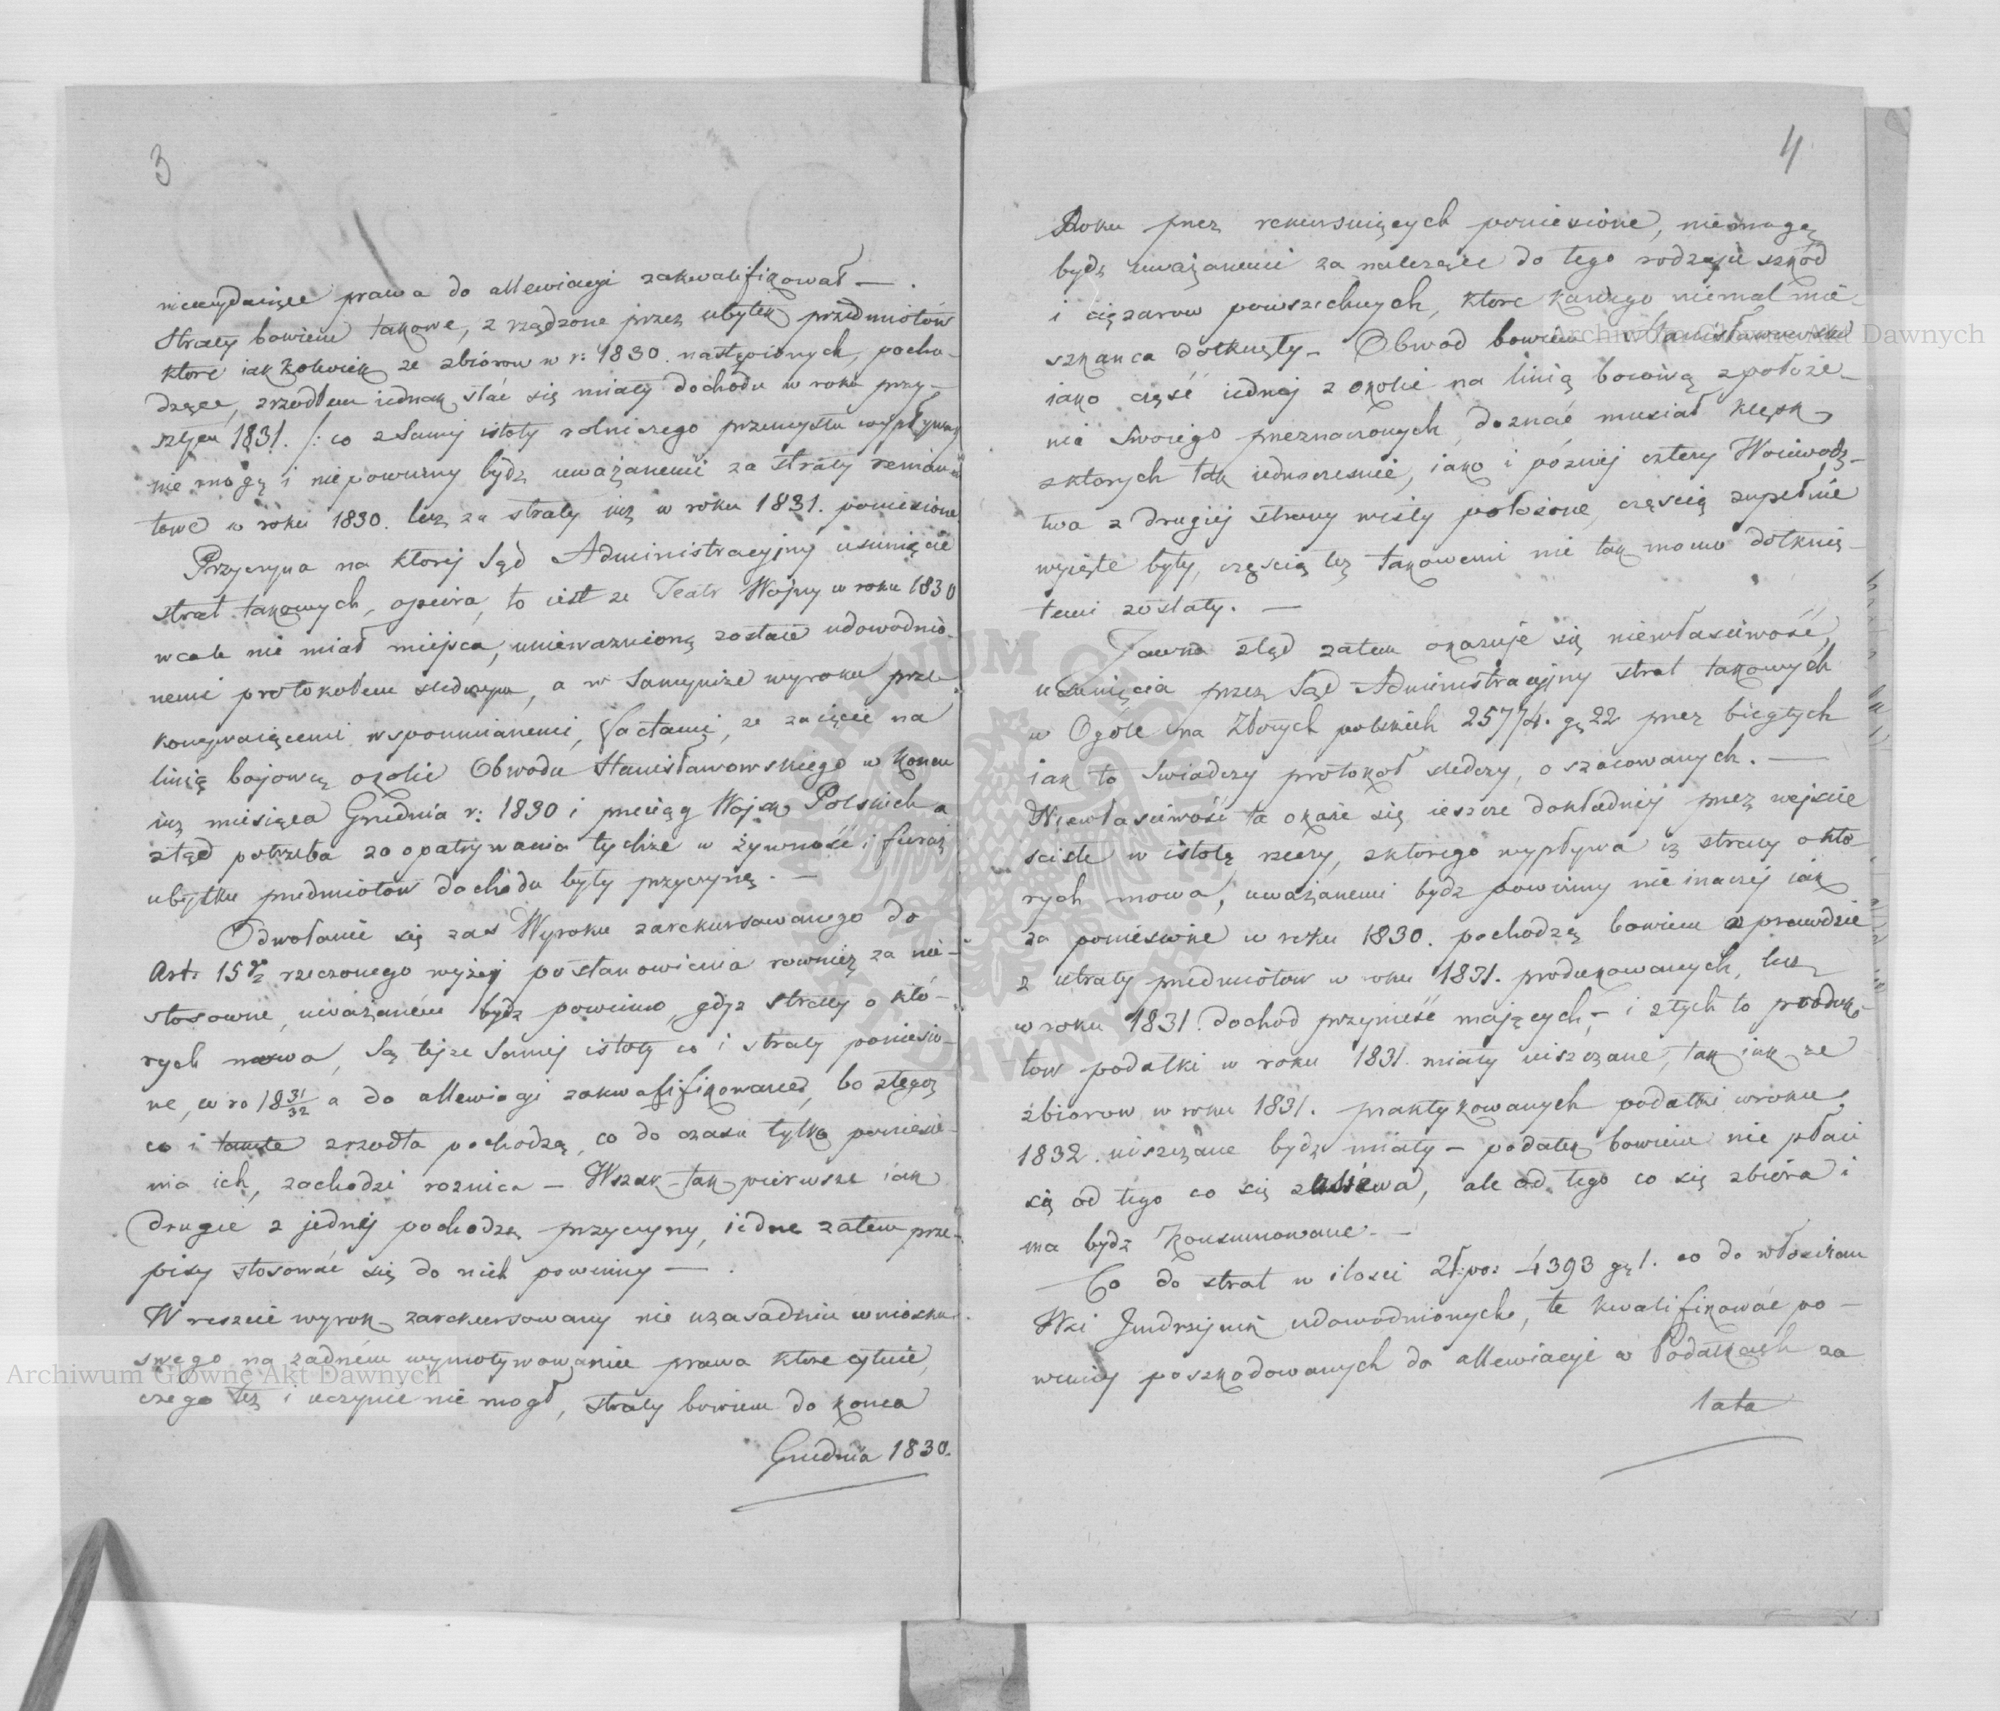 3
niewydaiące prawa do allewiacyi zakwalifikował —.
Straty bowiem takowe, zrządzone przez ubytek przedmiotów
które iakkolwiek ze zbiorow w r: 1830. nastąpionych, pocho-
dzące, zrzodłem iednak stać się miały dochodu w roku przy-
szłym 1831. /: co z samej istoty rolniczego przemysłu wypływa
nie mogą i niepowinny bydź uważanemi za straty
towe w roku 1830. lecz za straty iuż w roku 1831. poniesione
Przyczyna na ktorej Sąd Administracyjny usunięcie
strat takowych, opiera, to iest że Teatr Wojny w roku 1830
wcale nie miał miejsca, unieważnioną zostaie udowodnio-
nemi protokołem śledczym, a w samymże wyroku prze-
konywaiącemi wspomnianemi, factami, że zaięcie na
linią bojową okolic Obwodu Stanisławowskiego w końcu
iuż miesiąca Grudnia r: 1830 i przeciąg Wojsk Polskich a
ztąd potrzeba zaopatrywania tychże w żywność i furaż
ubytku przedmiotow dochodu były przyczyną. —
Odwołanie się zaś Wyroku zarekursowanego do
Art: 15 rzeczonego wyżej postanowienia rownież za nie-
stosowne, uważaném bydz powinno, gdyz straty o któ-
rych mowa, są tejże samej istoty co i straty poniesio-
ne, w ro 18 31/32 a do allewiacyi zakwalifikowane, bo ztegoż
co i tamte zrzodła pochodzą, co do czasu tylko poniesie-
nia ich, zachodzi roznica — Wszak tak pierwsze iak
drugie z jednéj pochodzą przyczyny, iedne zatem prze-
pisy stosować się do nich powinny —.
Wreszcie wyrok zarekursowany nie uzasadnia wniosku
swego na żadném wymotywowaniu prawa które cytuie,
czego też i uczynić nie mogł, straty bowiem do końca
Grudnia 1830.
4
Roku przez rekursuiących poniesione, niemogą
bydź uważanemi za należące do tego rodzaju szkód
i cięzarow powszechnych, ktore każdego niemal mie-
szkańca dotknęły — Obwod bowiem Stanisławowski
iako część iednej z okolic na linią boiową z położe-
nia swoiego przeznaczonych, doznać musiał klęsk,
z ktorych tak iednocześnie, iako i później cztery Woiewodz-
twa z drugiéj strony wisły położone, częścią zupełnie
wyięte były, częścią też takowemi nie tak mocno dotknię-
temi zostały. —
Jawna ztąd zatem okazuje się niewłasciwość,
usunięcia przez Sąd Administracyjny strat takowych
w Ogóle na Złotych polskich 25774. gr 22 przez biegłych
iak to swiadczy protokoł śledczy, oszacowanych. —
Niewłasciwość ta okaże się ieszcze dokładniej przez wejscie
scisłe w istotę rzeczy, z ktorego wypływa iż straty o kto-
rych mowa, uważanemi bydz powinny nie inaczej iak
za poniesione w roku 1830. pochodzą bowiem wprawdzie
z utraty przedmiotow w roku 1831. produkowanych, lecz
w roku 1831. dochod przynieść mających, — i z tych to produk-
tow podatki w roku 1831. miały uiszczane, tak iak ze
zbiorow w roku 1831. praktykowanych podatki w roku
1832. uiszczane bydź miały — podatek bowiem nie płaci
się od tego co się zasiéwa, ale od tego co się zbiéra i
ma bydz konsumowane. —
— Co do strat w ilosci Zł:po: 4393 gr 1. co do włościan
Wsi udowodnionych, te kwalifikować po-
winny poszkodowanych do allewiacyi w Podatkach za
lata
Archiwum Główne Akt Dawnych
Archiwum Główne Akt Dawnych
ARCHIWUM GŁÓWNE AKT DAWNYCH